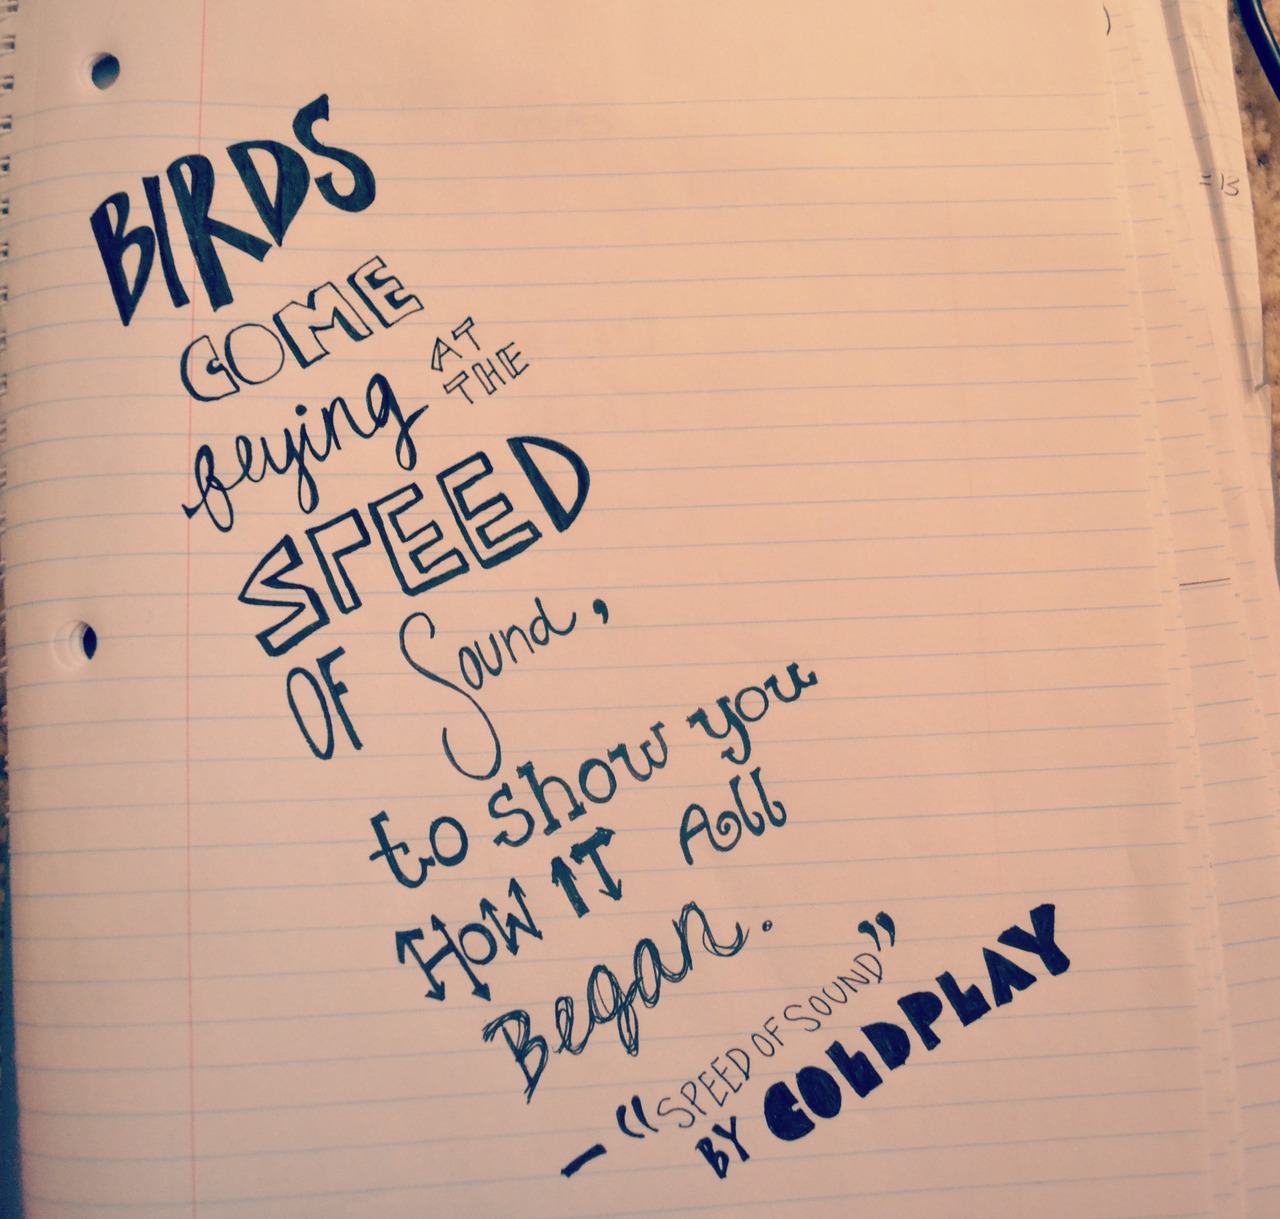 BIRDS
COME
flying AT
THE
SPEED
OF Sound,
to show you
HOW IT All
Began.
— "SPEED OF SOUND"
BY COLDPLAY